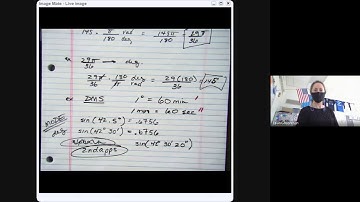 Image Mate - Live image
145 · π rad / 180 deg = 145π / 180 = 29π / 36
ex 29π / 36 → deg.
29π / 36 · 180 deg / π rad = 29(180) / 36 = 145°
ex DMS 1° = 60 min '
1 min = 60 sec "
NOTE: sin(42.5°) = .6756
deg sin(42° 30') = .6756
2nd apps sin(42° 30' 20")